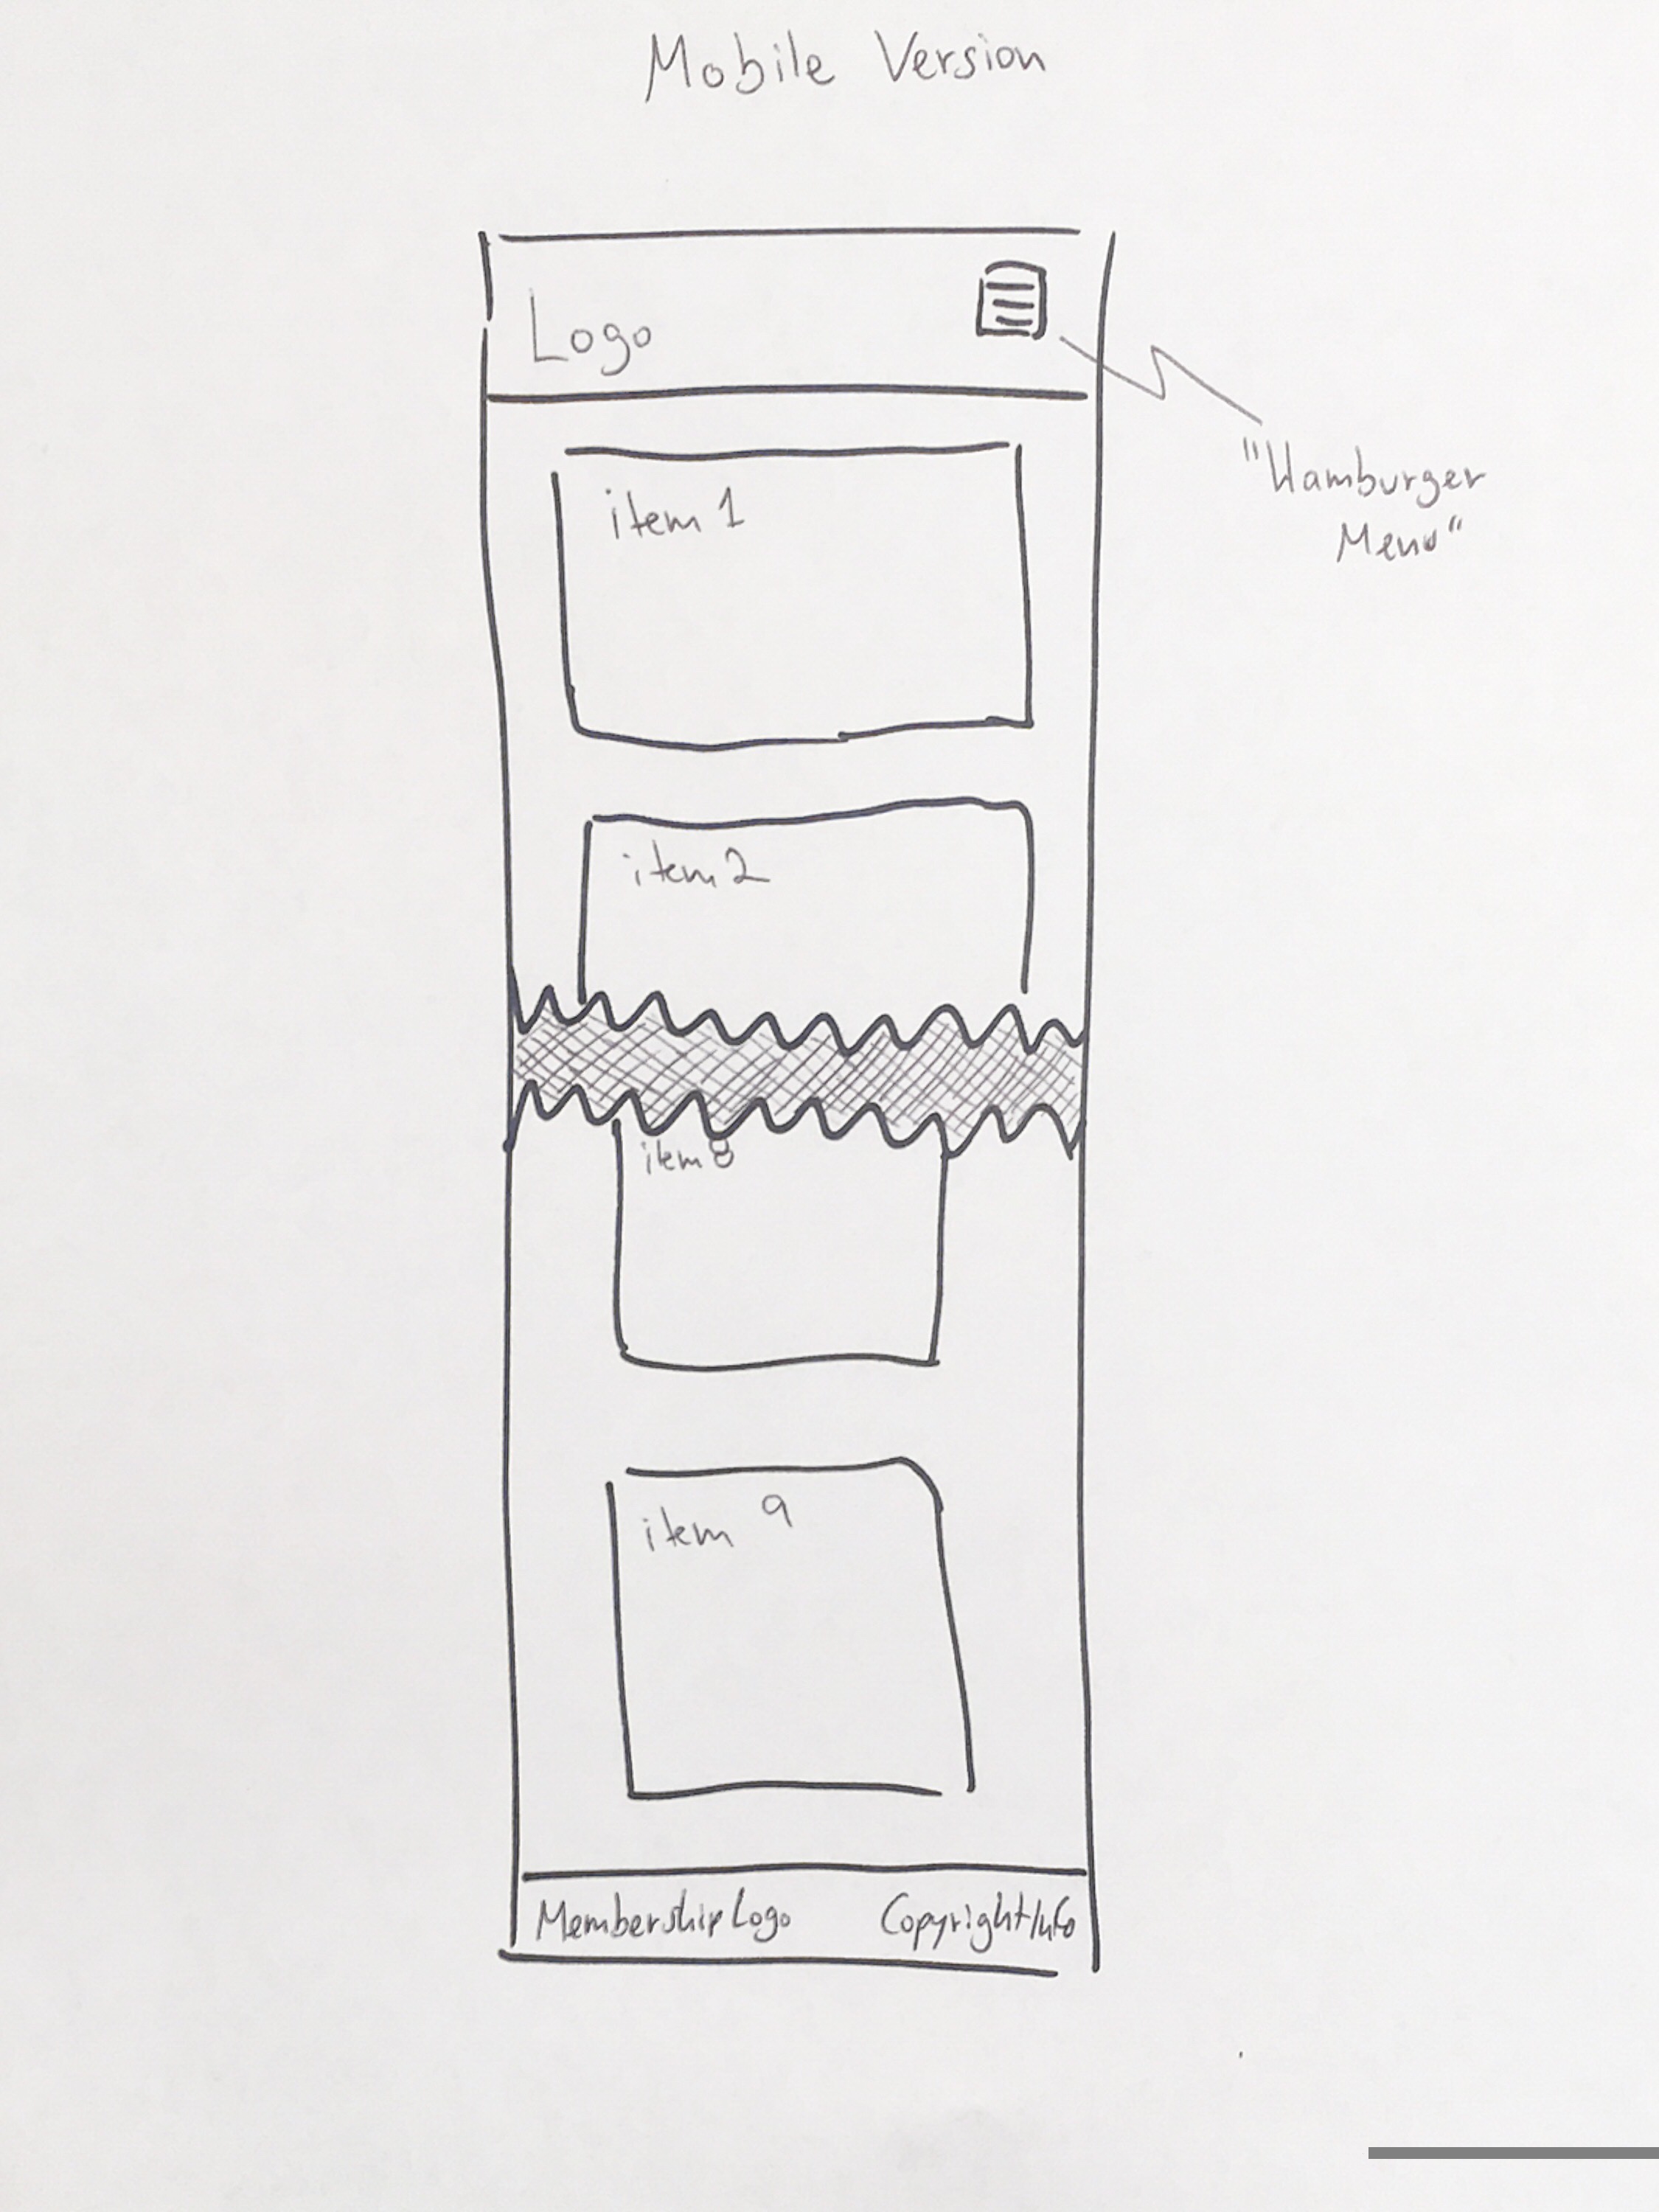 Mobile Version
Logo
"Hamburger
Menu"
item 1
item 2
item 8
item 9
Membership Logo
Copyright Info